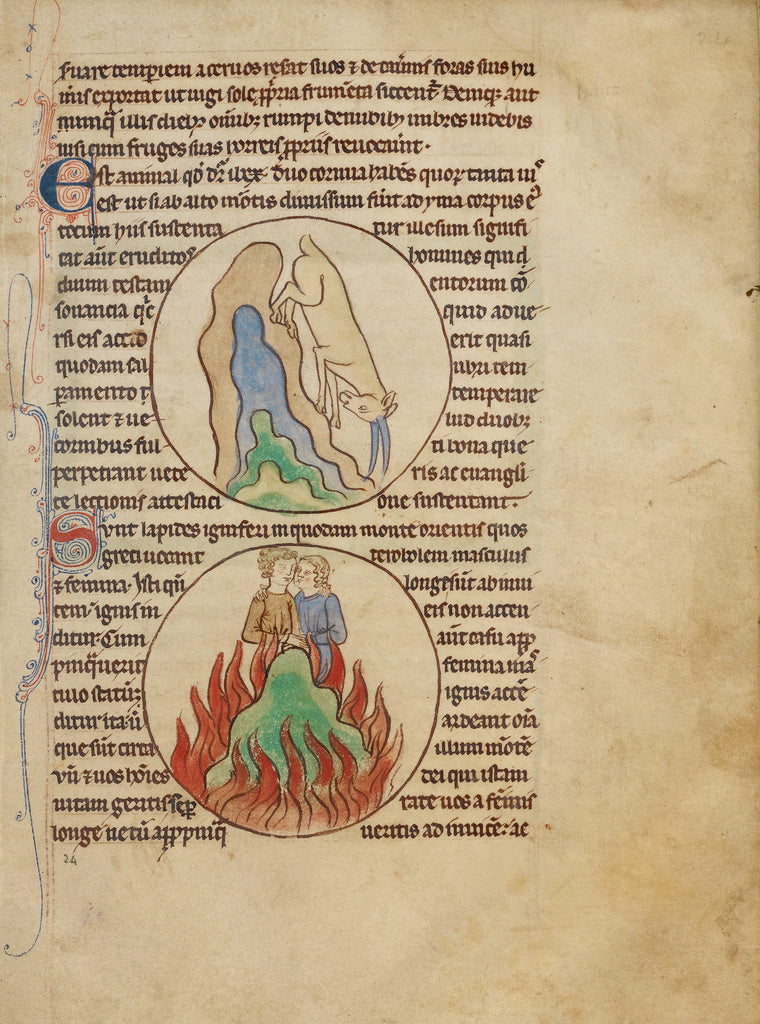 seruare temperiem aceruos resat suos & de cauernis foras suis hu
meris exportat ut iugi sole ppria frumenta siccent. Deniq; aut
numq illis dieb; omib; rumpi de nubib; imbres uidebis
nisi cum fruges suas horreis ppriis reuocauerint.
Est animal qd dr ibex. duo cornua habens quor tanta uis
est ut si ab alto montis dimissum fuerit ad yma corpus ei
totum hiis sustentatur illesum signifi
cat aut eruditos homines qui d
duum testam entorum con
sonantia qc quid aduer
rsi eis accid erit quasi
quodam salubri tem
peramento t temperare
solent & ue lud duob;
cornibus ful ti bona que
perpetrant uete ris ac euangli
ce lectionis attestaci one sustentant.
Sunt lapides igniferi in quodam monte orientis quos
greci uocant terobolem masculus
& femina. Isti qn longe sut ab inui
cem ignis in eis non accen
ditur. Cum aut casu app
pinquerit femina mas
culo statim ignis accen
ditur ita ut ardeant oia
que sut circa illum monte
Vn & uos hoies dei qui istam
uitam geritis sepa rate uos a femis
longe ne cu apppinq ueritis ad inuice ac
24